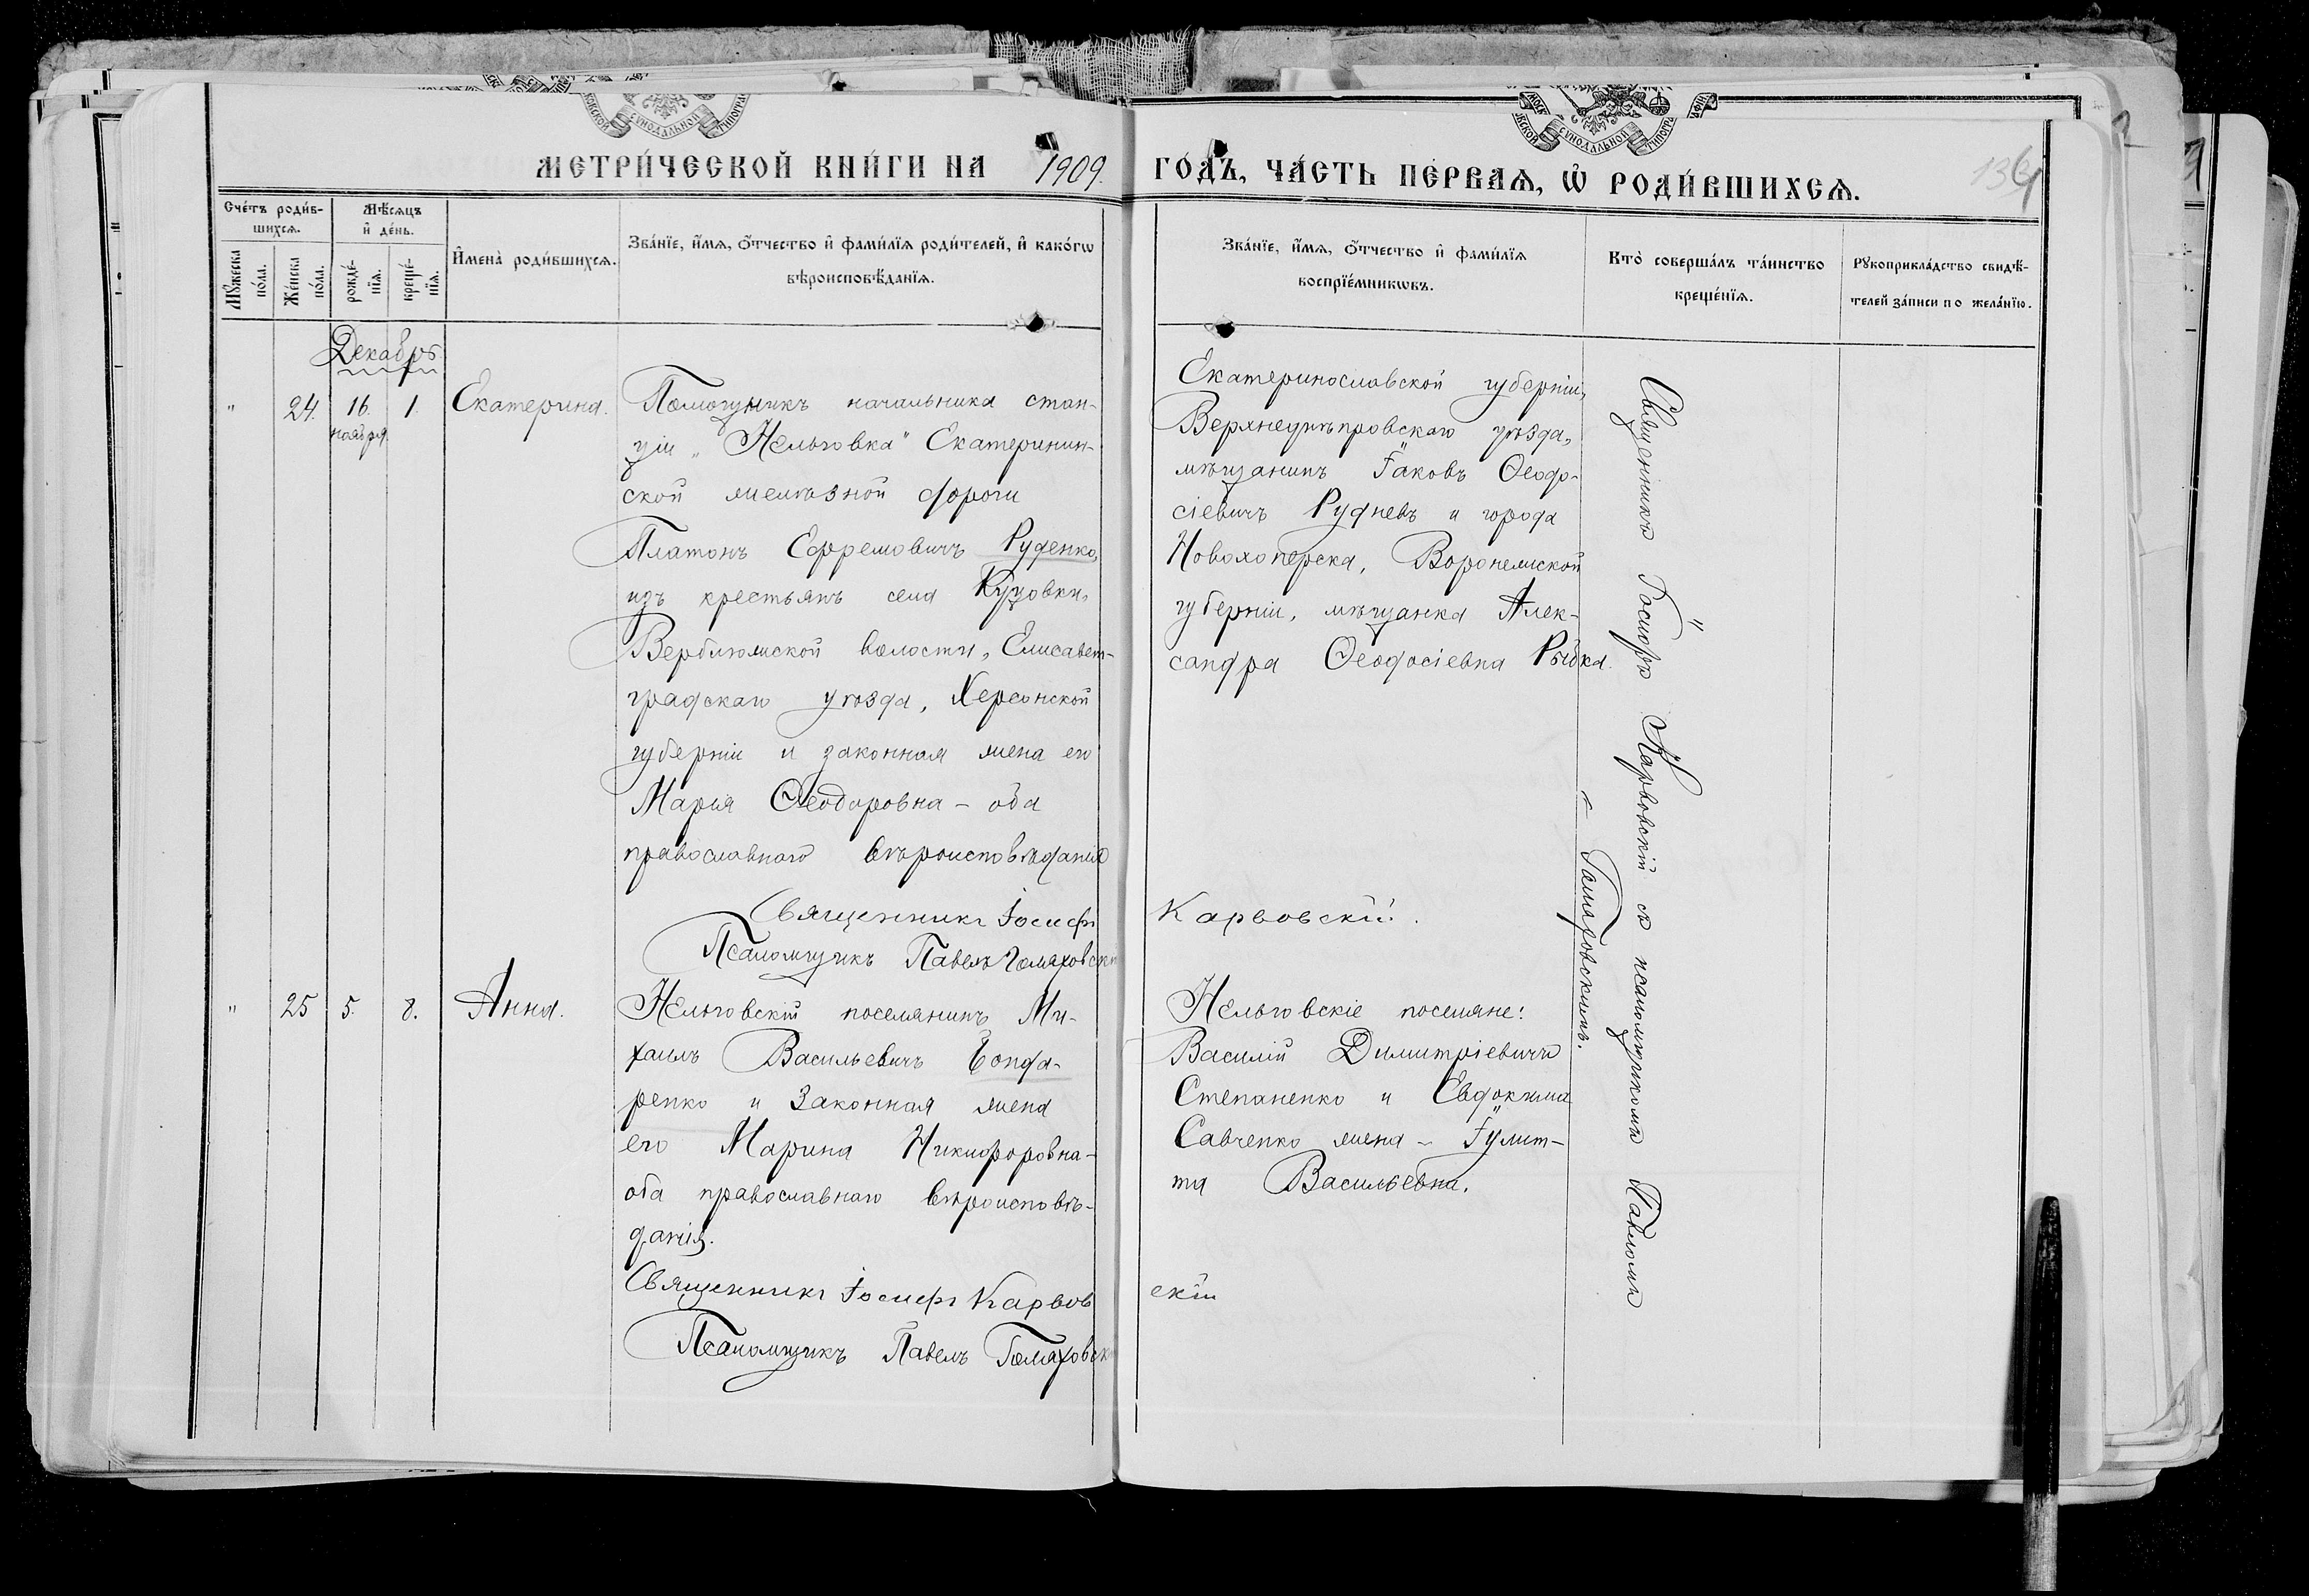 МЕТРИ́ЧЕСКОЙ КНИ́ГИ НА 1909. ГО́ДЪ, ЧА́СТЬ ПЕ́РВАѦ, Ѡ҆ РОДИ́ВШИХСѦ.
Сче́тъ роди́в-
шихсѧ.
Мѣ́сѧцъ
и҆ де́нь.
Мꙋ́жеска
по́ла.
Же́нска
по́ла.
рожде́-
нїѧ.
креще́-
нїѧ.
И҆мена̀ роди́вшихсѧ.
Зва́нїе, и҆́мѧ, ѻ҆́тчество и҆ фами́лїѧ роди́телей, и҆ како́гѡ
вѣроисповѣ́данїѧ.
Зва́нїе, и҆́мѧ, ѻ҆́тчество и҆ фами́лїѧ
воспрїе́мникѡвъ.
Кто̀ соверша́лъ та́инство
креще́нїѧ.
Рꙋкоприкла́дство свидѣ́-
телей за́писи по жела́нїю.
Декабрь
" 24. 16. 1. Екатерина.
ноября
Помощникъ начальника стан-
ціи „Нельговка" Екатеринин-
ской желѣзной дороги
Платонъ Ефремовичъ Руденко,
изъ крестьянъ села Куцовки,
Верблюжской волости, Елисавет-
градскаго уѣзда, Херсонской
губерніи и законная жена его
Марія Ѳеодоровна – оба
православнаго вѣроисповѣданія
Священникъ Іосифъ Карвовскій.
Псаломщикъ Павелъ
Екатеринославской губерніи,
Верхнеднѣпровскаго уѣзда,
мѣщанинъ Іаковъ Ѳеодо-
сіевичъ Рудневъ и города
Новохоперска, Воронежской
губерніи, мѣщанка Алек-
сандра Ѳеодосіевна Рыбка.
Священникъ Іосифъ Карвовскій съ псаломщикомъ Павломъ
" 25 5. 8. Анна.
Нельговскій поселянинъ Ми-
хаилъ Васильевичъ Бонда-
ренко и законная жена
его Марина Никифоровна –
оба православнаго вѣроисповѣ-
данія.
Священникъ Іосифъ Карвовскій
Псаломщикъ Павелъ
Нельговскіе поселяне:
Василій Димитріевичъ
Степаненко и Евдокима
Савченко жена – Іулит-
та Васильевна.